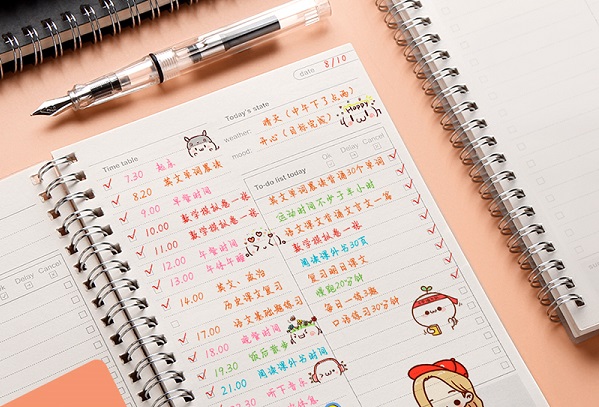 date 8/10
Today's state
weather: 晴天(中午下了点雨)
mood: 开心(目标完成)
Happy
Time table
7.30 起床
8.20 英文单词晨读
9.00 早餐时间
10.00 数学模拟卷一张
11.00 数学模拟卷一张
12.00 午餐时间
13.00 午休午睡
14.00 英文、政治
历史课文复习
17.00 语文基础题练习
18.00 晚餐时间
19.30 饭后散步
21.00 阅读课外书时间
听下音乐
To-do list today
Ok Delay Cancel
英文单词晨读背诵30个单词
运动时间不少于半小时
语文课文背诵文言文一篇
数学模拟卷一张
阅读课外书30页
复习明日课文
慢跑20分钟
每日一练3题
口语练习30分钟
Ok Delay Cancel